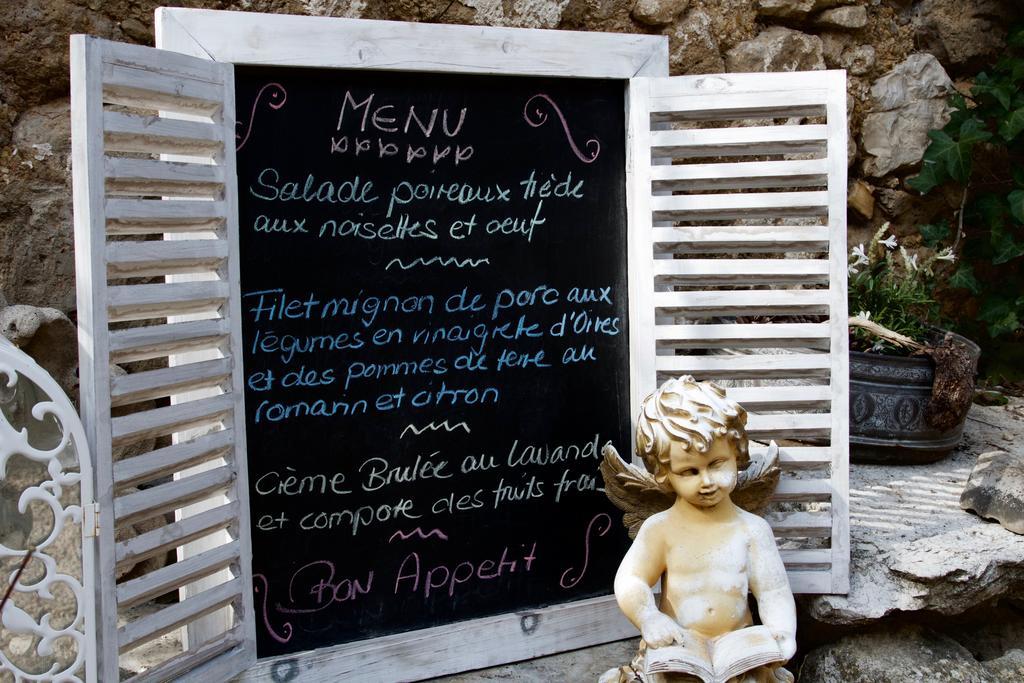 MENU
Salade poireaux tiède
aux noisettes et oeuf
Filet mignon de porc aux
légumes en vinaigrette d'Olives
et des pommes de terre au
romarin et citron
Crème Brulée au Lavande
et compote des fruits frais
Bon Appetit